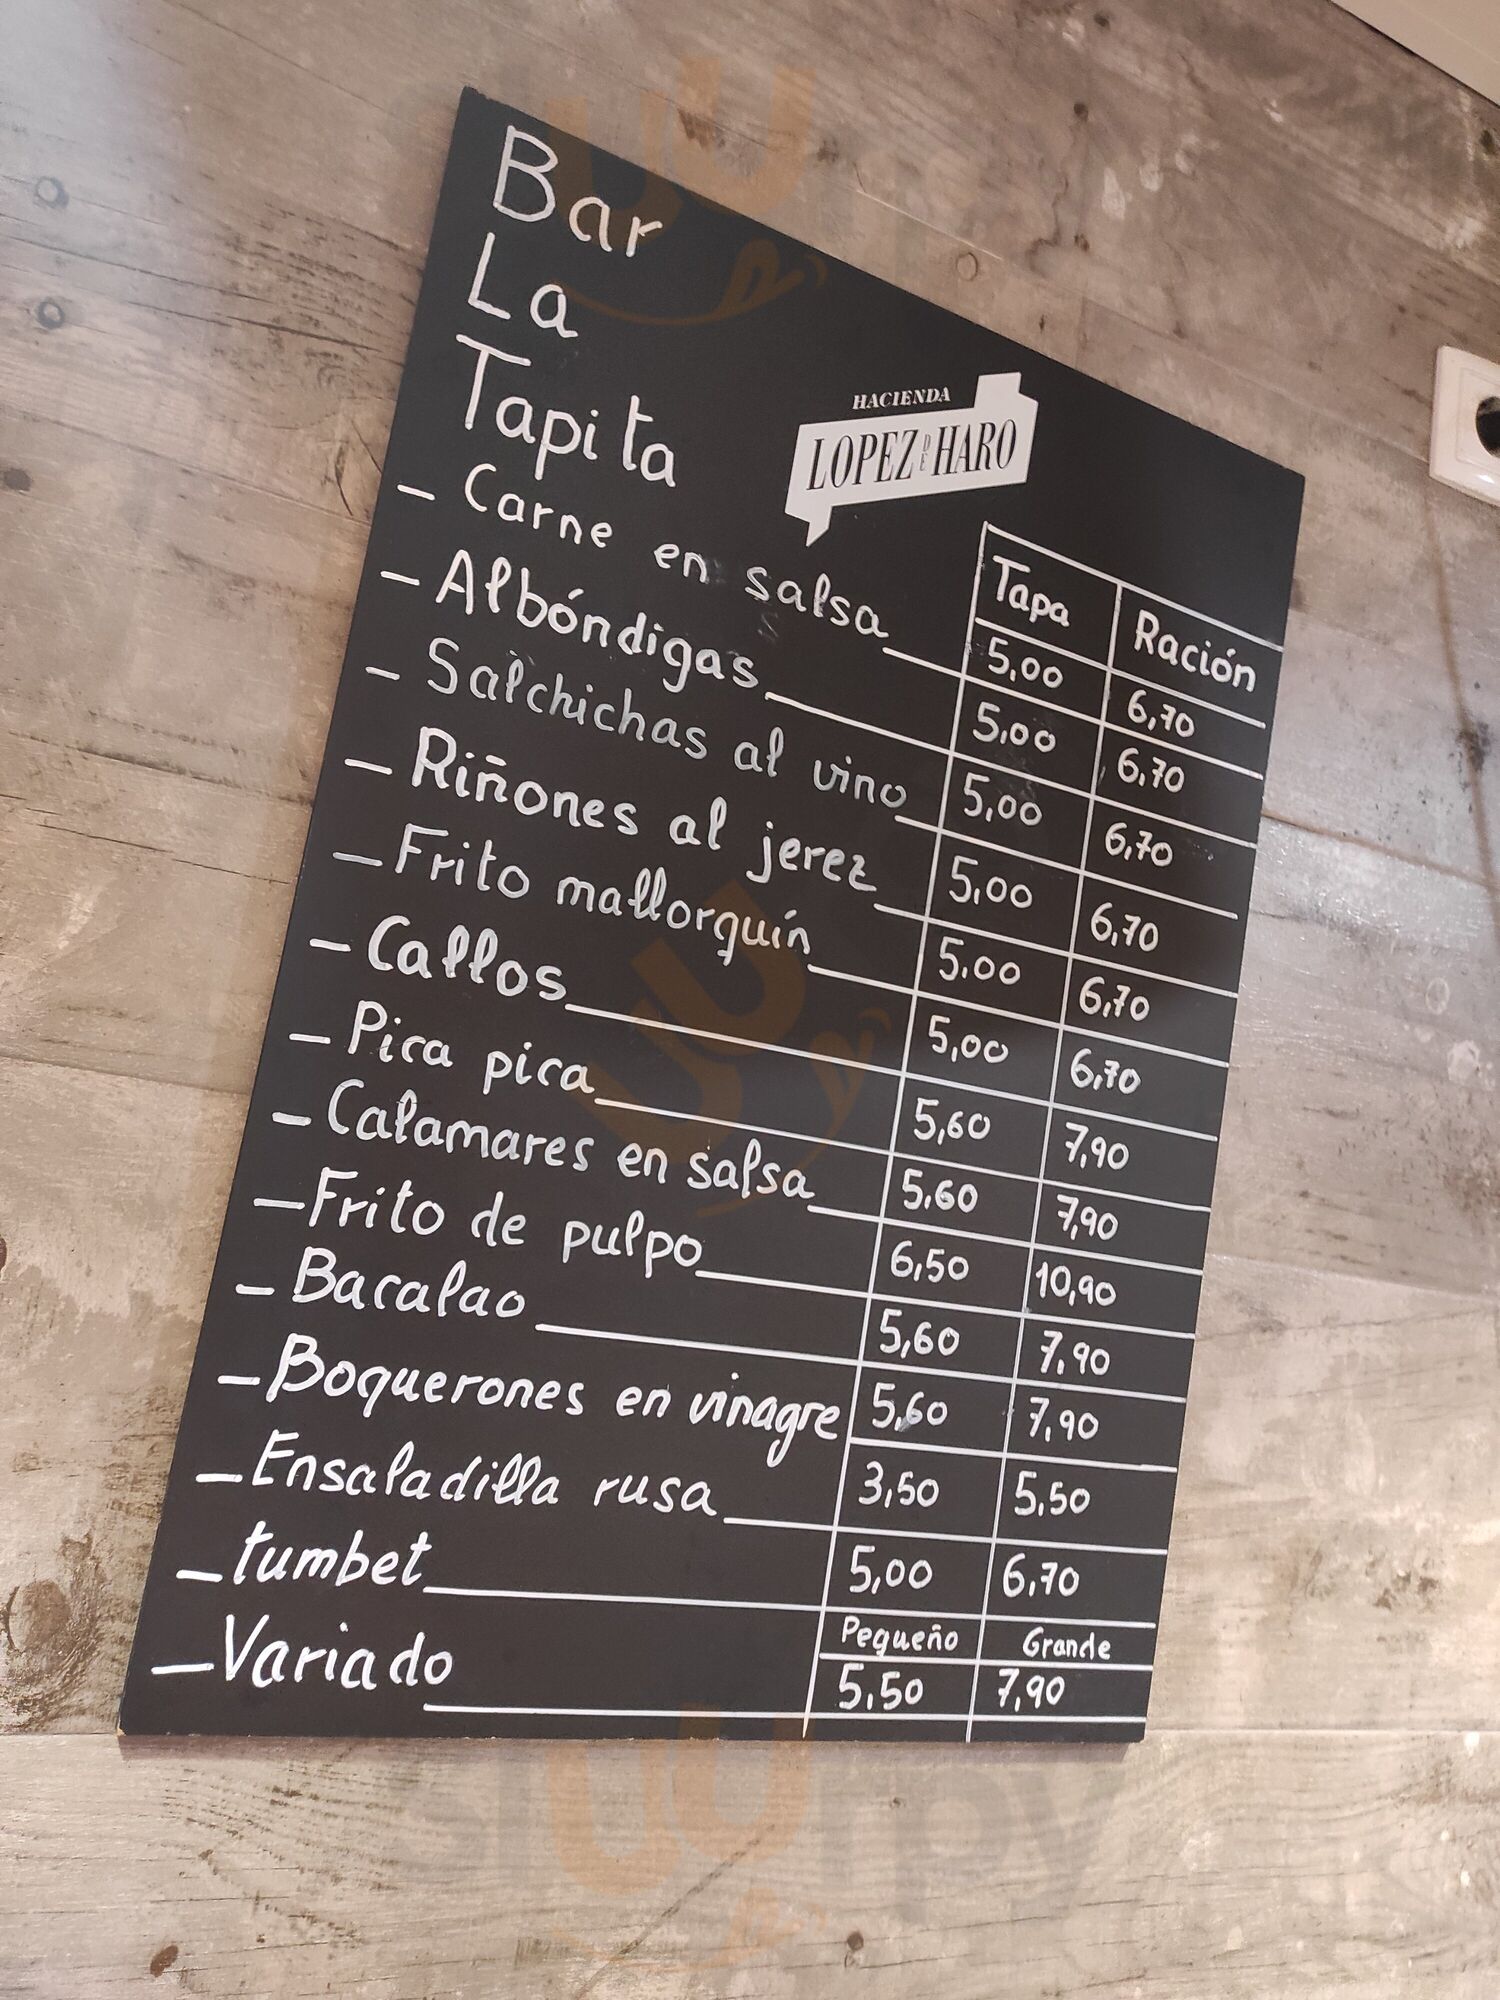 Bar
La
Tapita
HACIENDA
LOPEZ DE HARO
Tapa Ración
- Carne en salsa 5,00 6,70
- Albóndigas 5,00 6,70
- Salchichas al vino 5,00 6,70
- Riñones al jerez 5,00 6,70
- Frito mallorquín 5,00 6,70
- Callos 5,00 6,70
- Pica pica 5,60 7,90
- Calamares en salsa 5,60 7,90
- Frito de pulpo 6,50 10,90
- Bacalao 5,60 7,90
- Boquerones en vinagre 5,60 7,90
- Ensaladilla rusa 3,50 5,50
- tumbet 5,00 6,70
Pequeño Grande
- Variado 5,50 7,90
slurpy